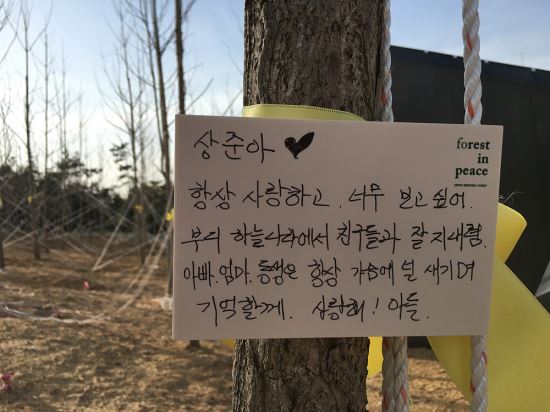 상준아 ♥
forest
in
peace
항상 사랑하고. 너무 보고 싶어.
부디 하늘나라에서 친구들과 잘 지내렴.
아빠. 엄마. 동생은 항상 가슴에 널 새기며
기억할께. 사랑해! 아들.